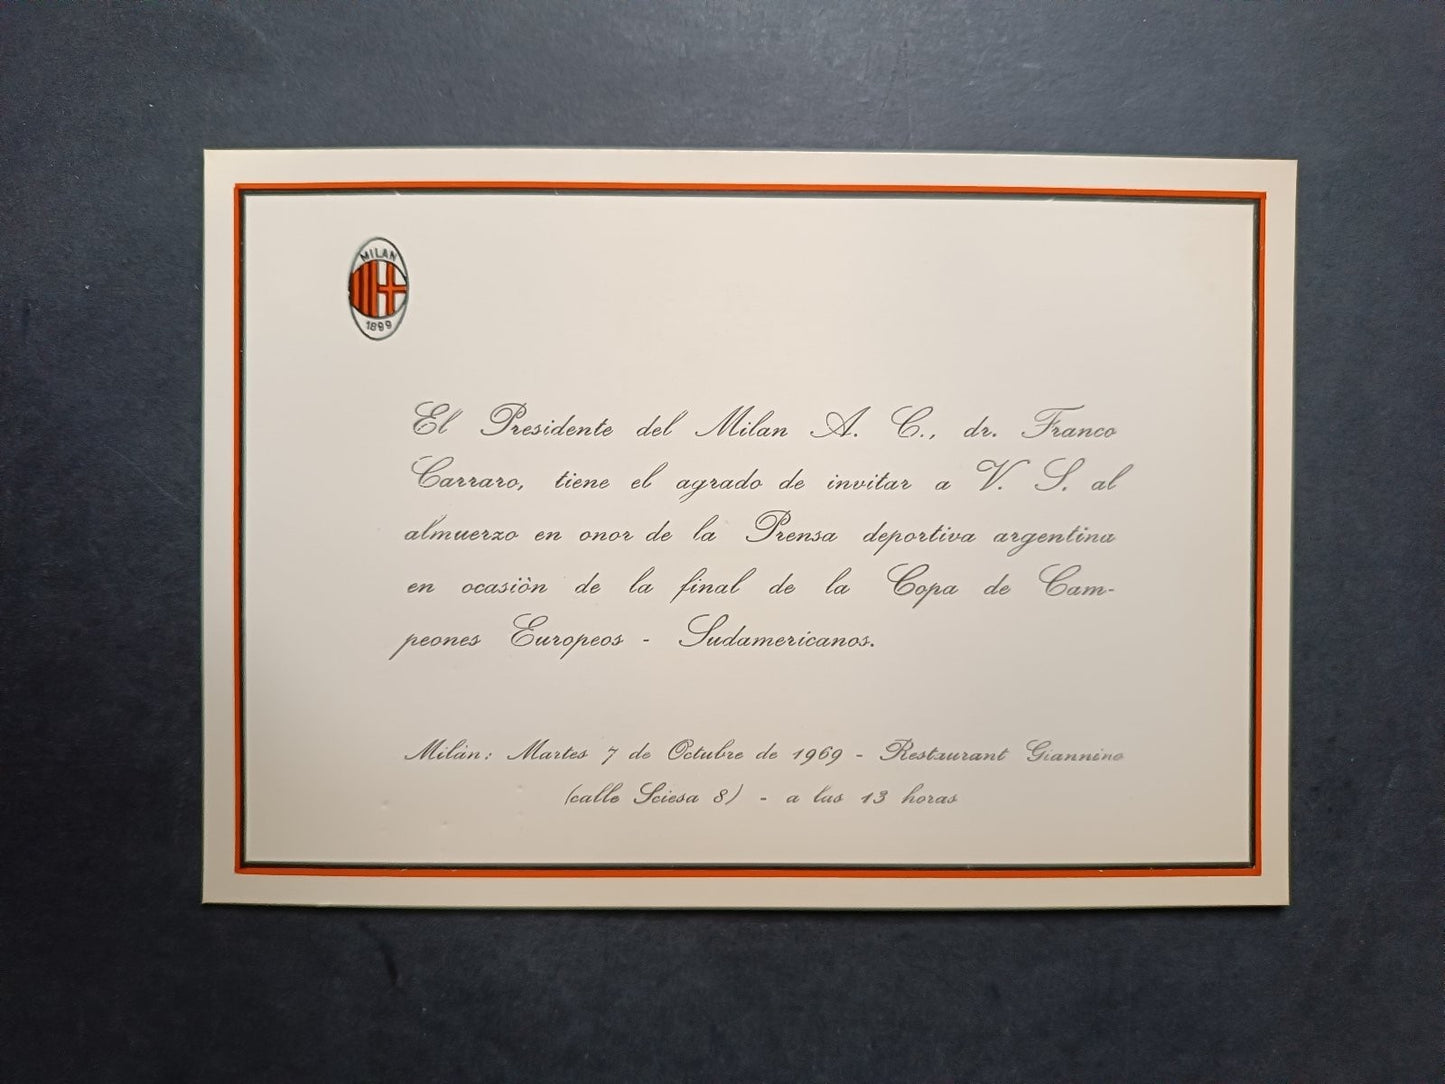 MILAN
1899
El Presidente del Milan A. C., dr. Franco
Carraro, tiene el agrado de invitar a V. S. al
almuerzo en onor de la Prensa deportiva argentina
en ocasiòn de la final de la Copa de Cam-
peones Europeos - Sudamericanos.
Milàn: Martes 7 de Octubre de 1969 - Restaurant Giannino
(calle Sciesa 8) - a las 13 horas